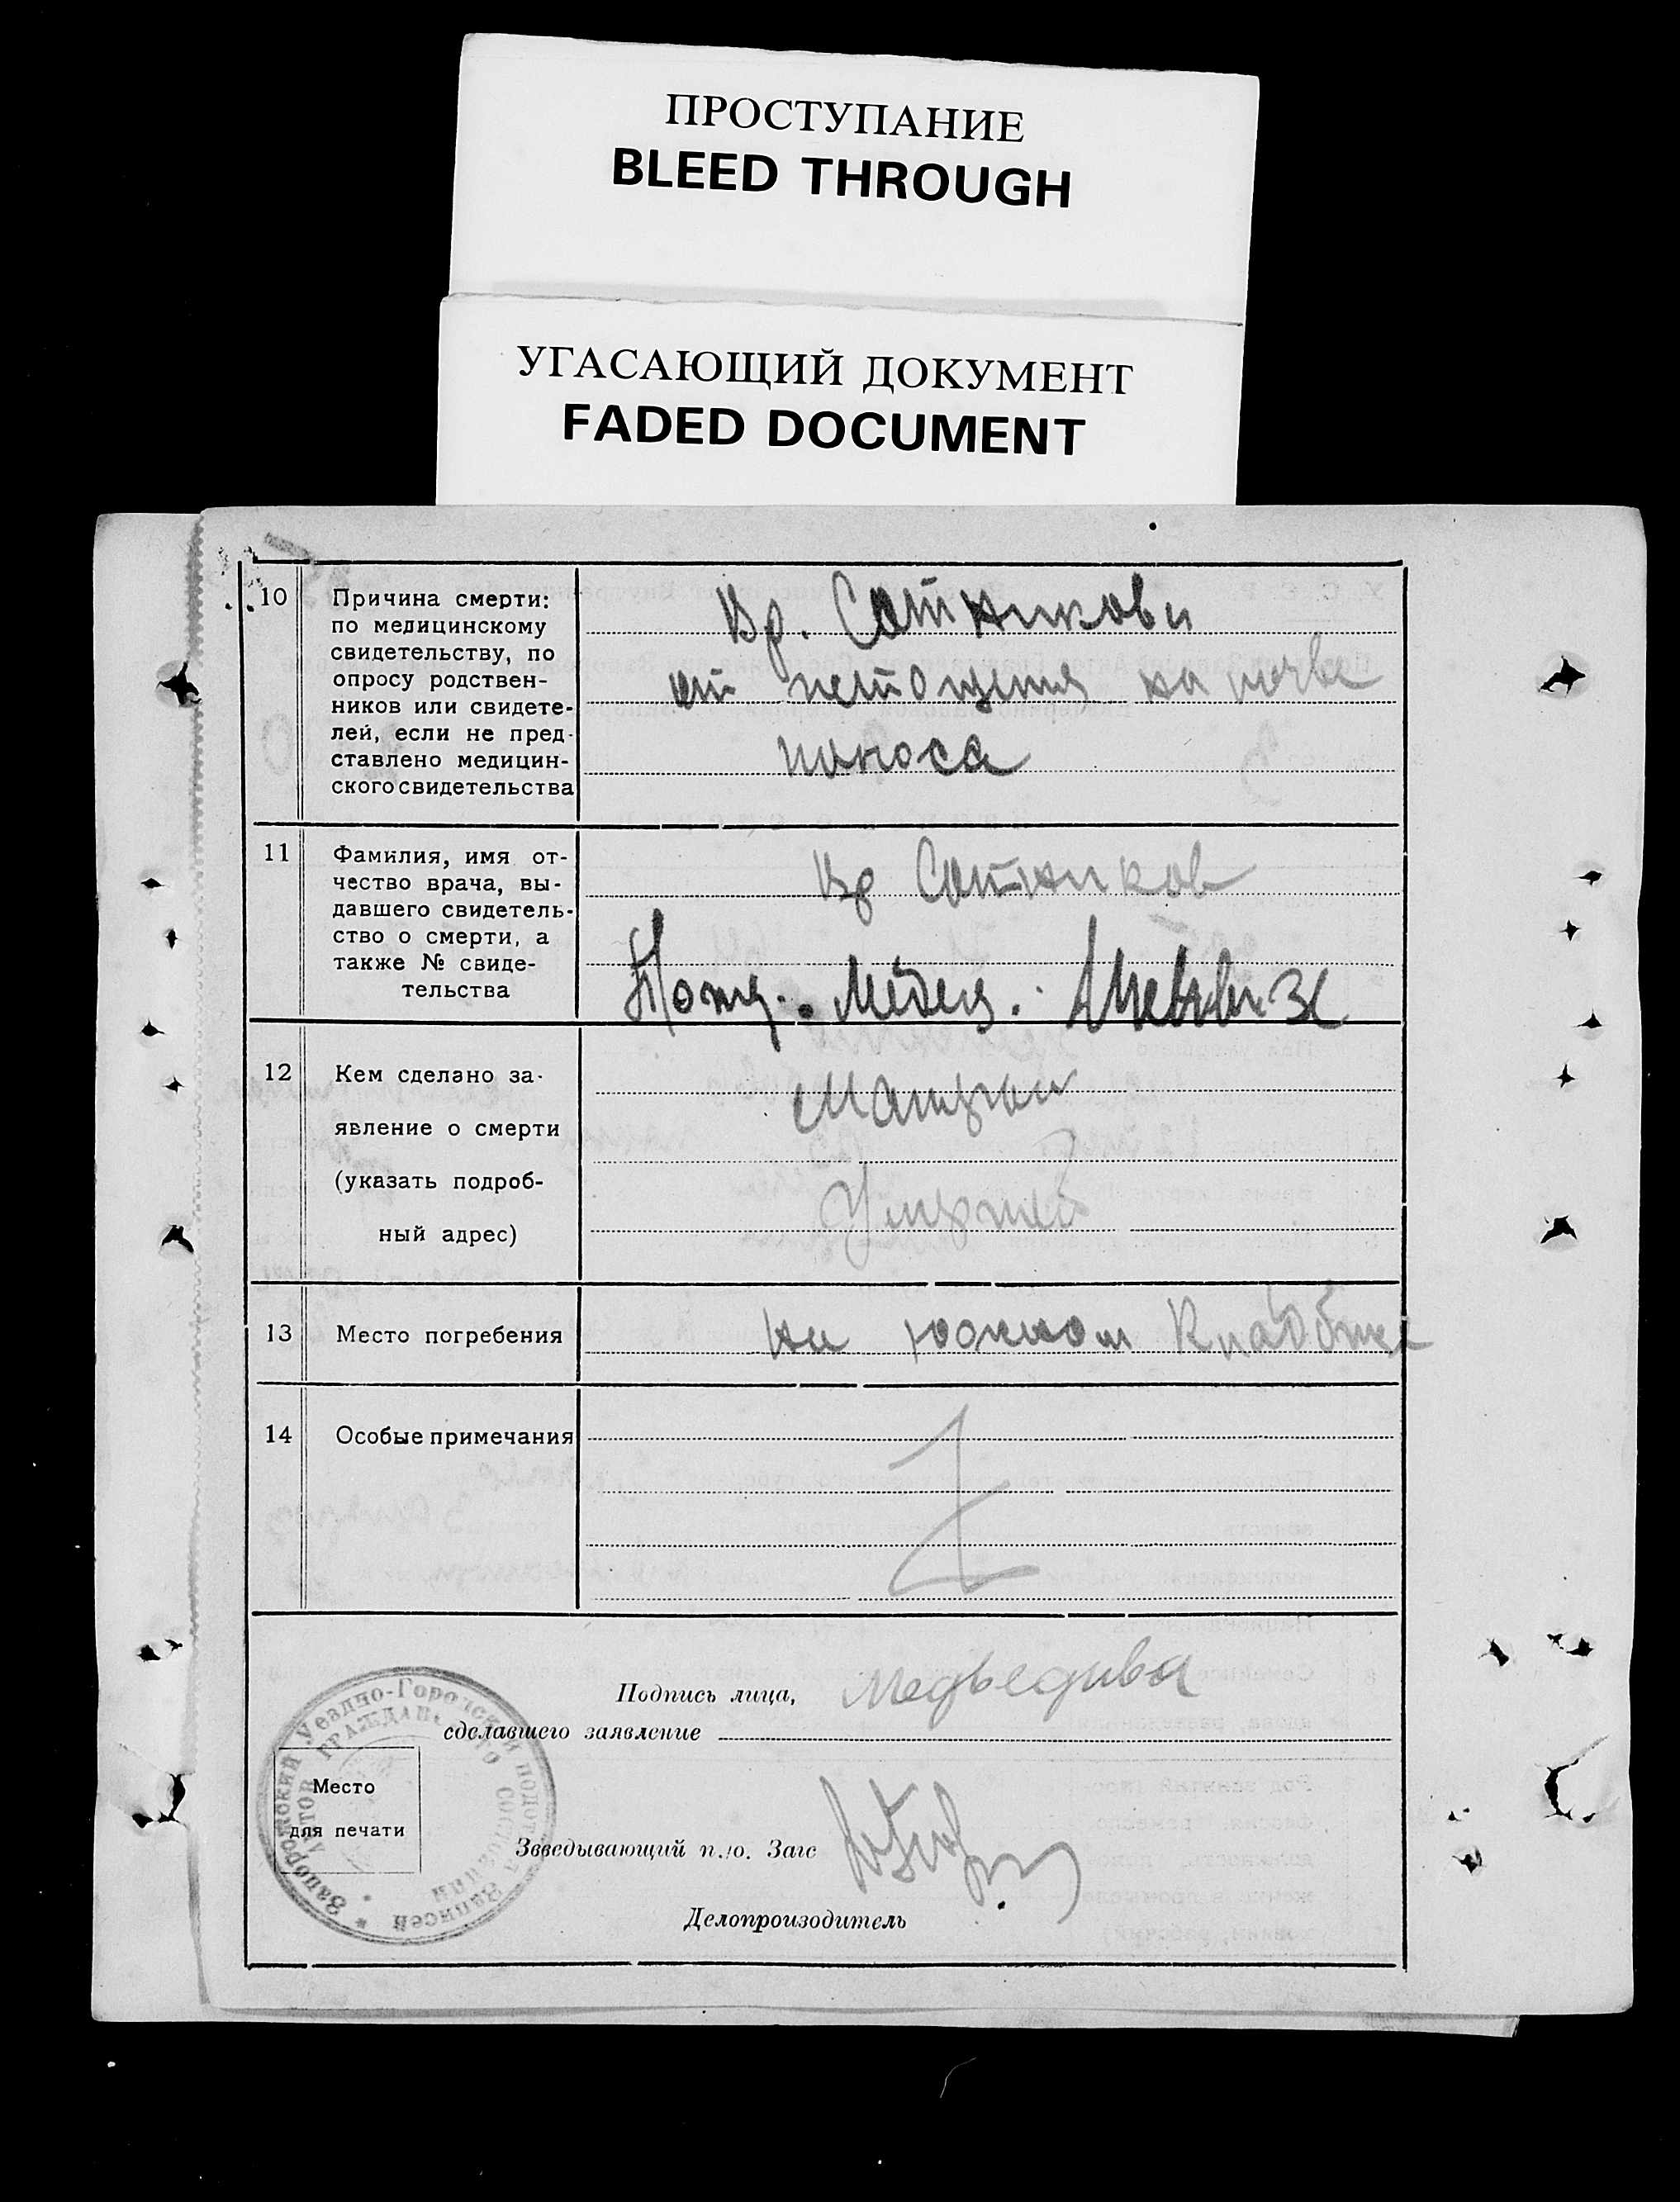 ПРОСТУПАНИЕ
BLEED THROUGH
УГАСАЮЩИЙ ДОКУМЕНТ
FADED DOCUMENT
10
Причина смерти:
по медицинскому
свидетельству, по
опросу родствен-
ников или свидете-
лей, если не пред-
ставлено медицин-
ского свидетельства
Вр. Сотникова
от истощения на почве
поноса
11
Фамилия, имя от-
чество врача, вы-
давшего свидетель-
ство о смерти, а
также № свиде-
тельства
Вр Сотников
12
Кем сделано за-
явление о смерти
(указать подроб-
ный адрес)
Матерью
Умершей
13
Место погребения
на южном Кладбище
14
Особые примечания
Подпись лица,
сделавшего заявление
Медведева
Место
для печати
Запорожский Уездно-Городской подотдел Записей
АКТОВ ГРАЖДАНСКОГО СОСТОЯНИЯ
Зведывающий п./о. Загс
Делопроизодитель